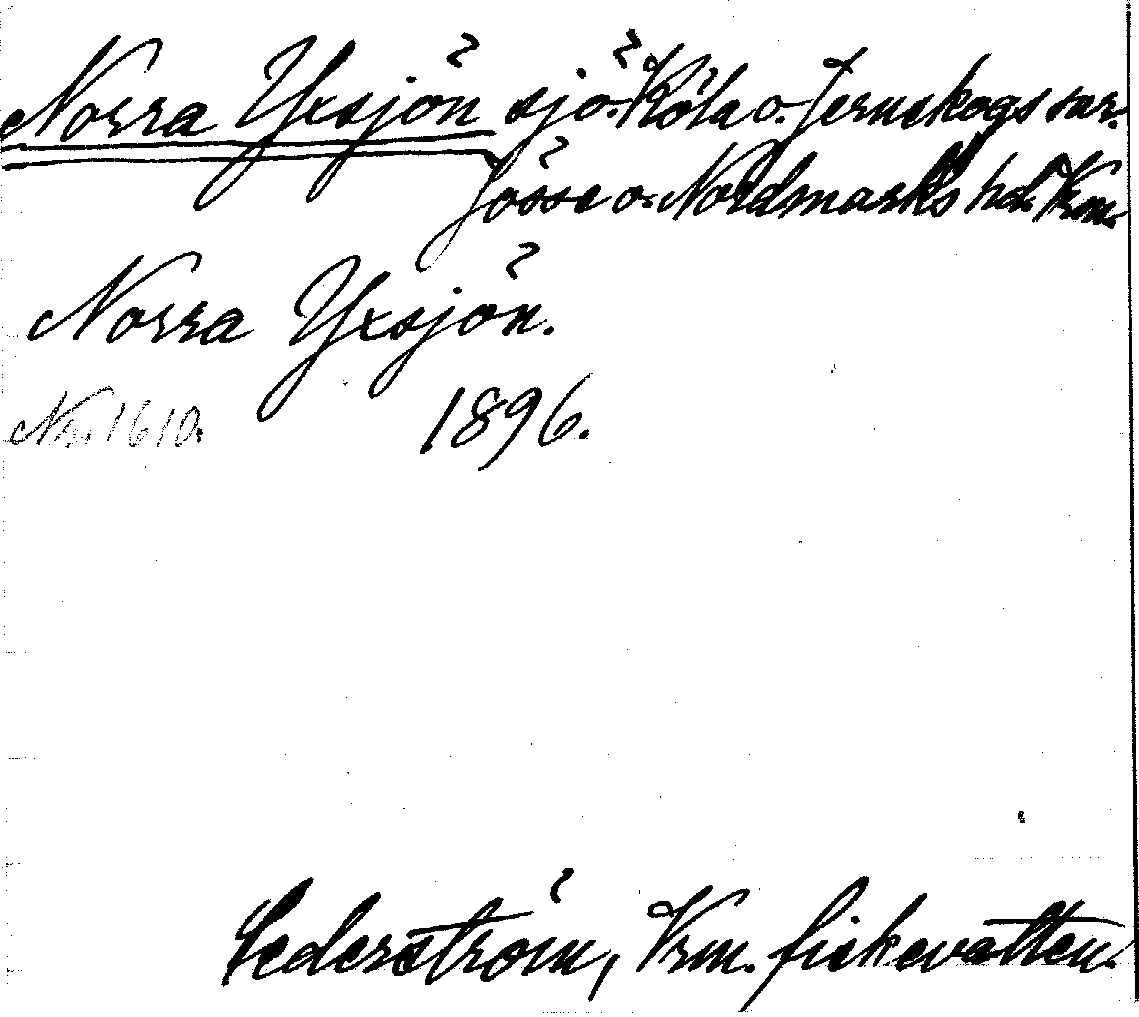 Norra Yxsjön sjö. Köla o. Jernskogs snr.
Jösse o. Nordmarks hd. Vrm.
Norra Yxsjön.
Nr. 1610. 1896.
Cederström, Vrm. fiskevatten.